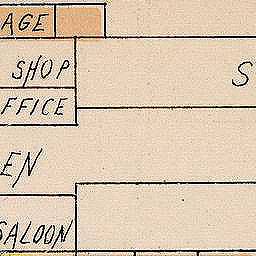 AGE
SHOP
S
FFICE
EN
SALOON